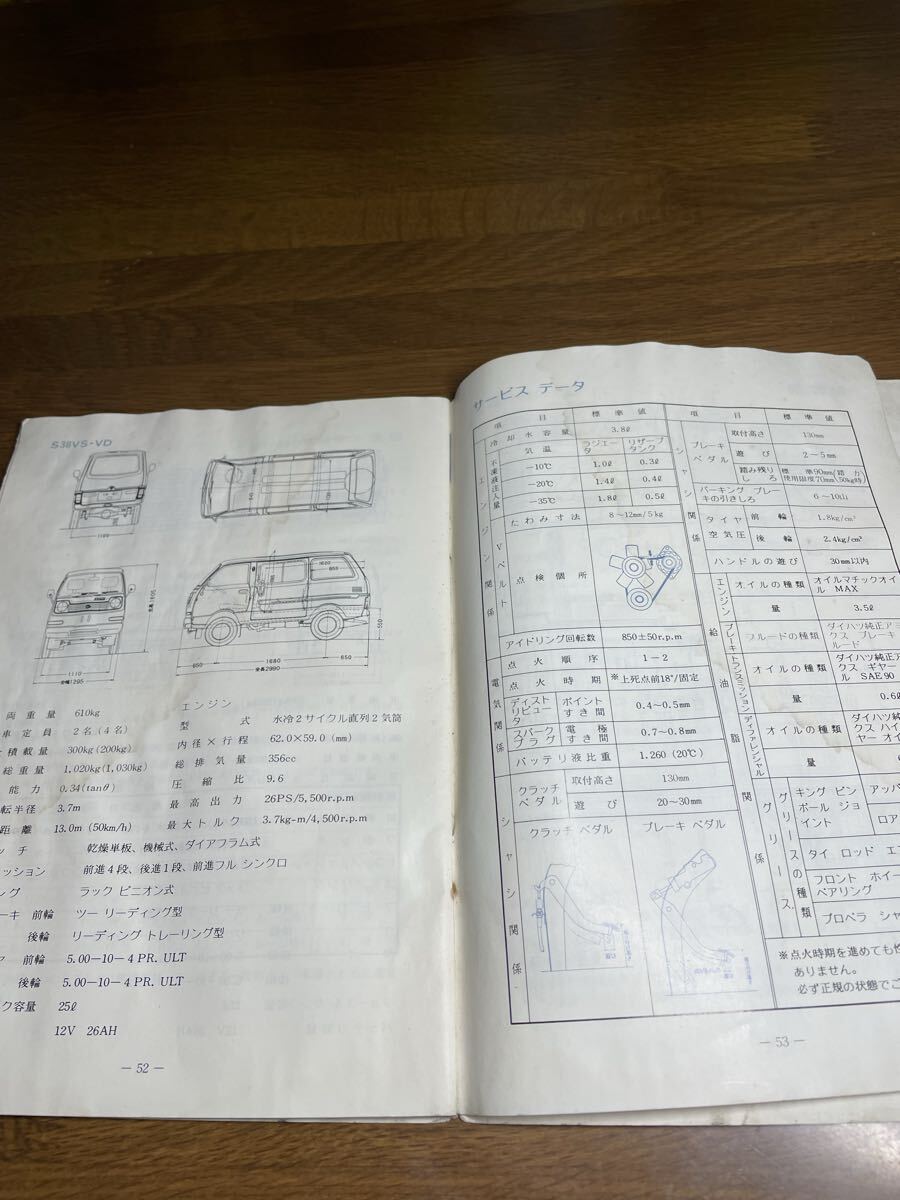 S38VS・VD
1100
1620
全高1605
550
1110
全幅1295
650
1680
650
全長2990
両重量 610kg
車定員 2名(4名)
積載量 300kg(200kg)
総重量 1,020kg(1,030kg)
能力 0.34(tanθ)
転半径 3.7m
距離 13.0m(50km/h)
エンジン
型式 水冷2サイクル直列2気筒
内径×行程 62.0×59.0(mm)
総排気量 356cc
圧縮比 9.6
最高出力 26PS/5,500r.p.m
最大トルク 3.7kg-m/4,500r.p.m
ッチ 乾燥単板、機械式、ダイアフラム式
ッション 前進4段、後進1段、前進フル シンクロ
ング ラック ピニオン式
ーキ 前輪 ツー リーディング型
後輪 リーディング トレーリング型
ヤ 前輪 5.00-10-4 PR. ULT
後輪 5.00-10-4 PR. ULT
ク容量 25ℓ
12V 26AH
— 52 —
サービス データ
項目 標準値
エンジン関係
冷却水容量 3.8ℓ
不凍液注入量
気温 ラジエータ リザーブタンク
-10℃ 1.0ℓ 0.3ℓ
-20℃ 1.4ℓ 0.4ℓ
-35℃ 1.8ℓ 0.5ℓ
Vベルト
たわみ寸法 8~12mm/5kg
点検個所
アイドリング回転数 850±50r.p.m
電気関係
点火順序 1-2
点火時期 ※上死点前18°/固定
ディストリビュータ ポイントすき間 0.4~0.5mm
スパークプラグ 電極すき間 0.7~0.8mm
バッテリ液比重 1.260(20℃)
シャシ関係
クラッチペダル 取付高さ 130mm
遊び 20~30mm
クラッチ ペダル ブレーキ ペダル
項目 標準値
シャシ関係
ブレーキペダル 取付高さ 130mm
遊び 2~5mm
踏み残りしろ 標準90mm(踏力
使用限度70mm 50kg時)
パーキング ブレーキの引きしろ 6~10山
タイヤ空気圧 前輪 1.8kg/cm²
後輪 2.4kg/cm²
ハンドルの遊び 30mm以内
給油脂関係
エンジン オイルの種類 オイルマチックオイル MAX
量 3.5ℓ
ブレーキ フルードの種類 ダイハツ純正アミ
クス ブレーキ
ルード
トランスミッション オイルの種類 ダイハツ純正ア
クス ギヤー
ル SAE90
量 0.6ℓ
ディファレンシャル オイルの種類 ダイハツ純
クス ハイ
ヤー オイ
量
グリース
グリースの種類
キング ピン
ボール ジョイント
アッパ
ロア
タイ ロッド エ
フロント ホイー
ベアリング
プロペラ シャ
※点火時期を進めても性
ありません。
必ず正規の状態でご
— 53 —